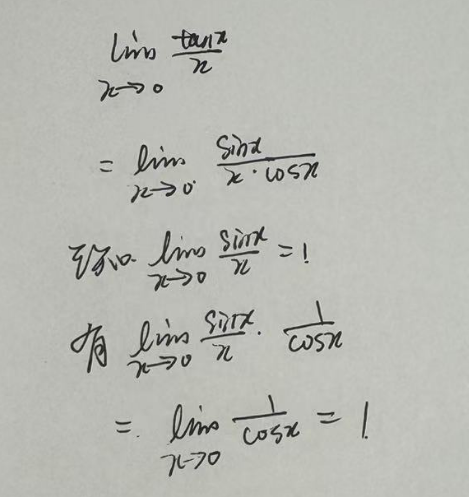 lim x→0 tanx/x
= lim x→0 sinx/(x·cosx)
已知 lim x→0 sinx/x = 1
有 lim x→0 sinx/x · 1/cosx
= lim x→0 1/cosx = 1